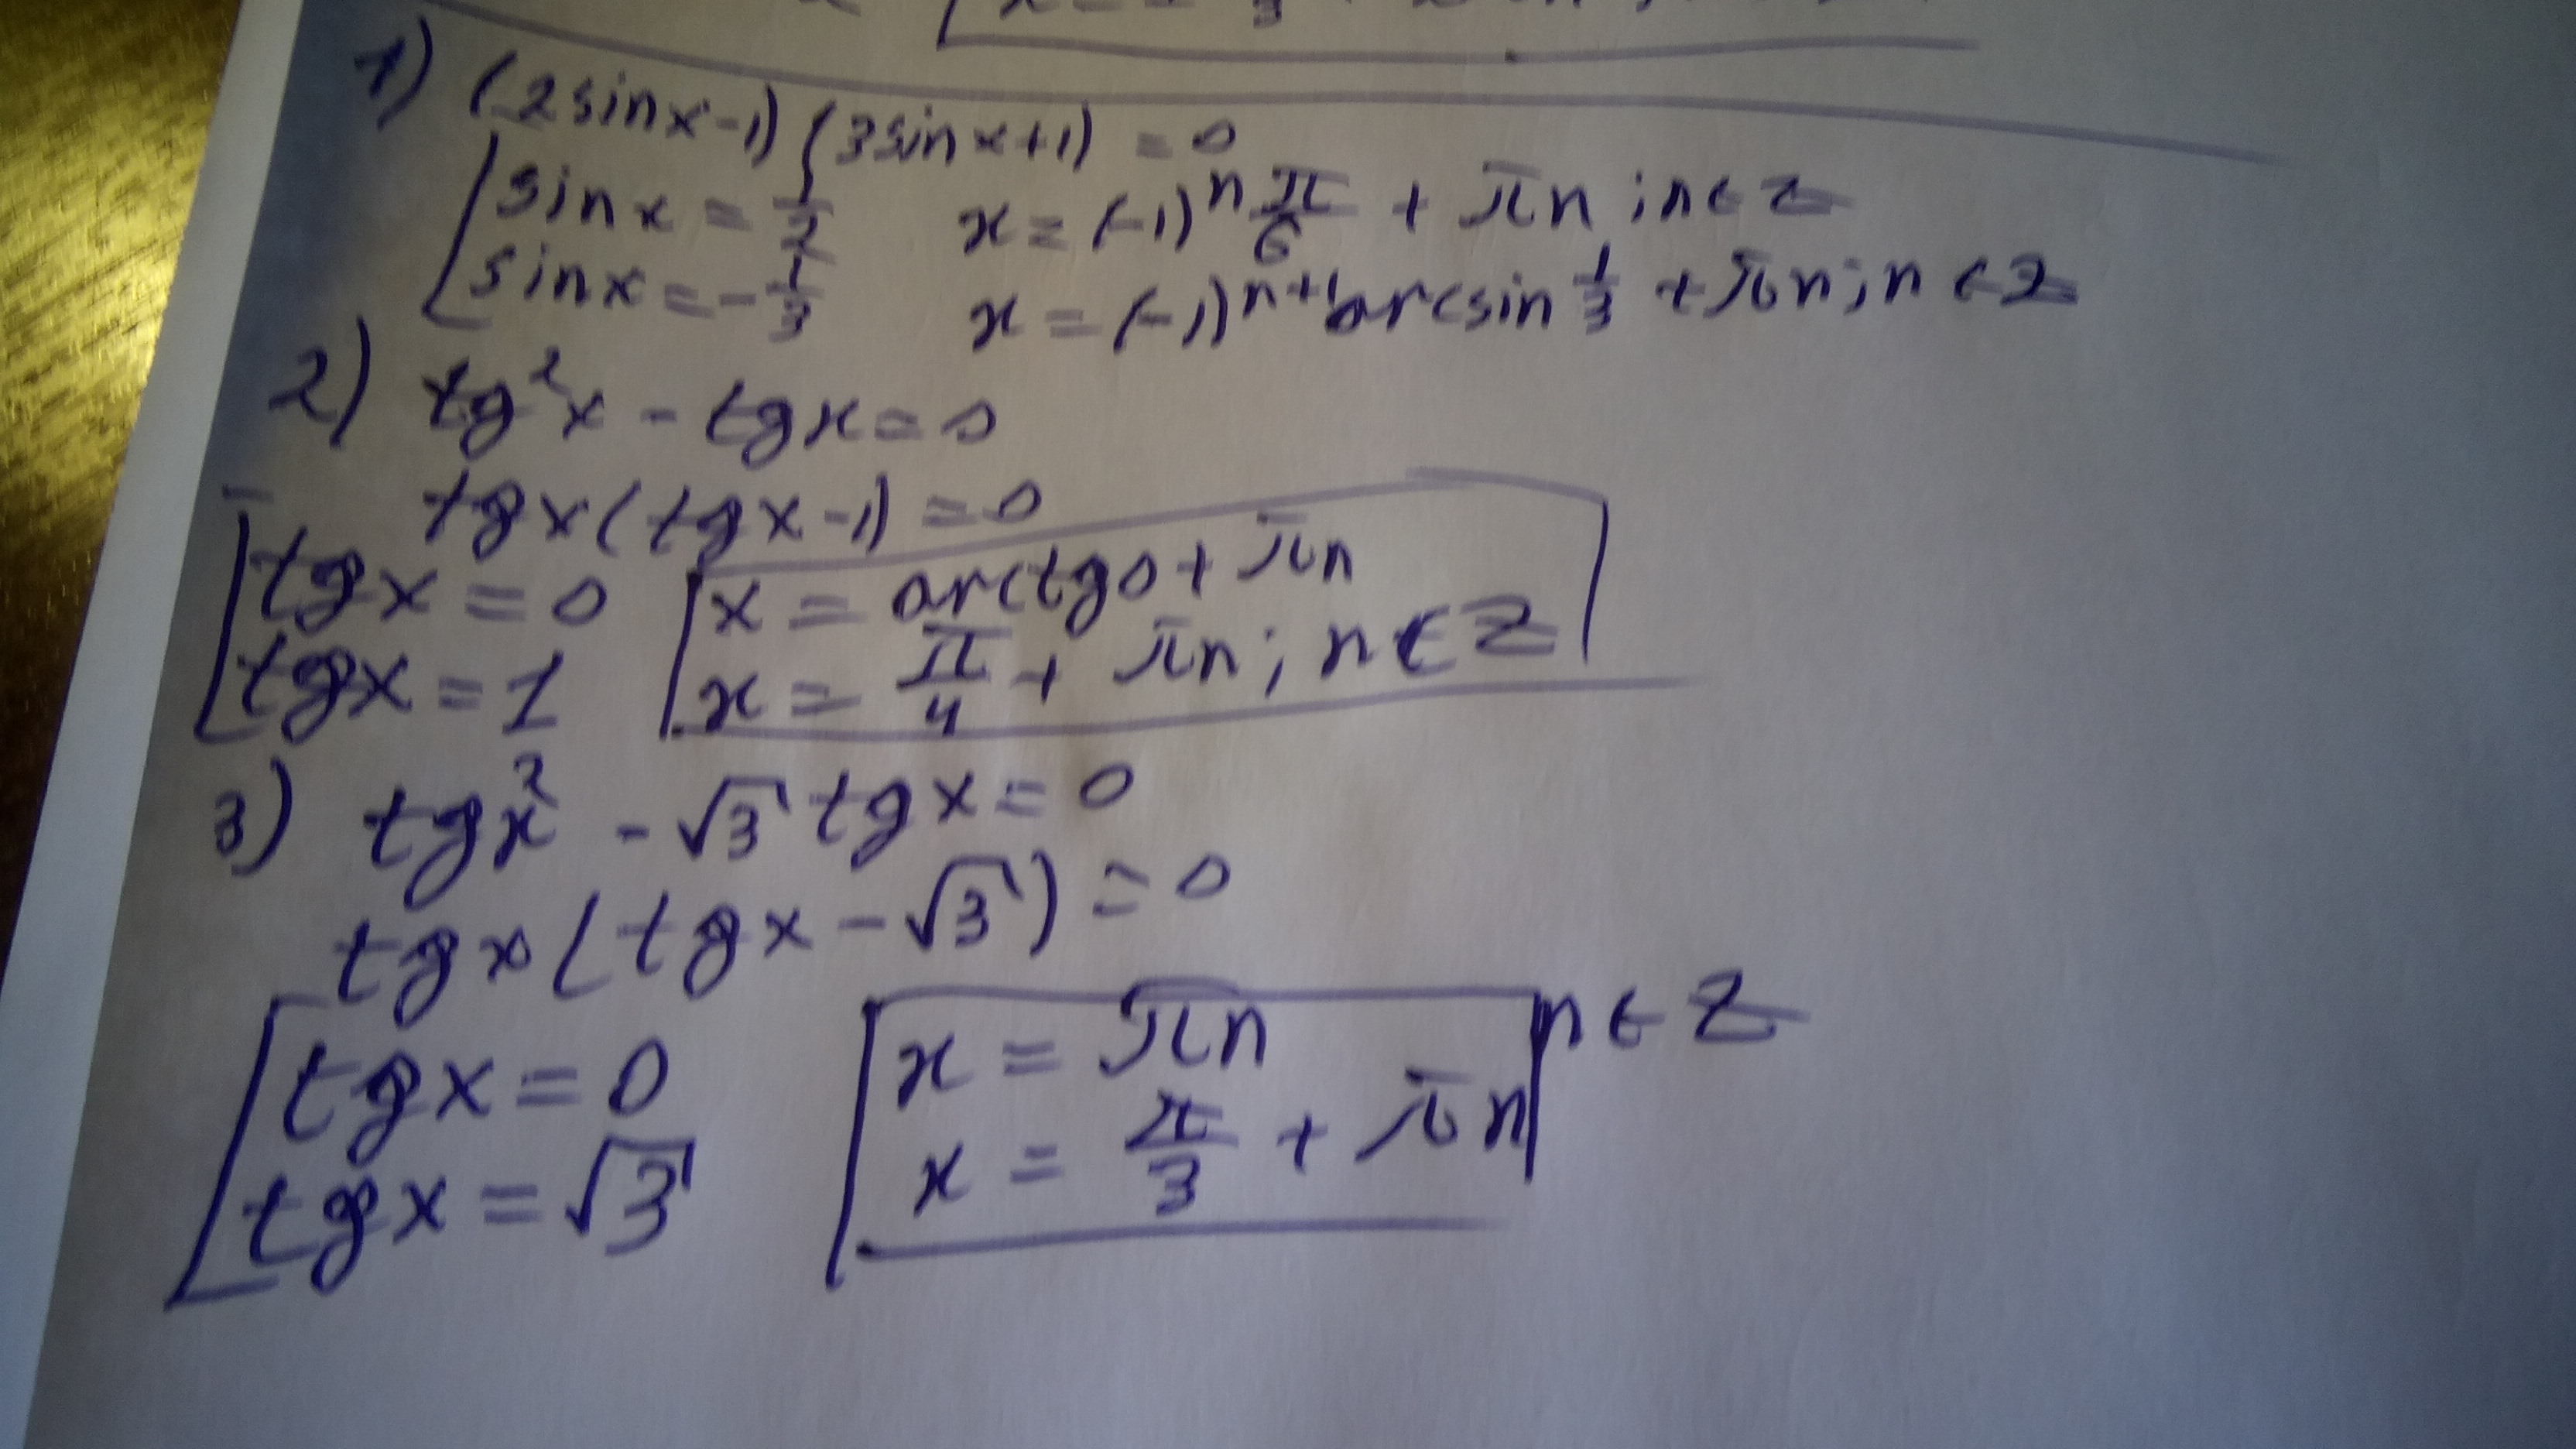 1) (2sinx-1)(3sinx+1) = 0
sinx = 1/2 x = (-1)ⁿ π/6 + πn ; n∈Z
sinx = -1/3 x = (-1)ⁿ⁺¹ arcsin 1/3 + πn ; n∈Z
2) tg²x - tgx = 0
tgx(tgx-1) = 0
tgx = 0 x = arctg0 + πn
tgx = 1 x = π/4 + πn ; n∈Z
3) tgx² - √3 tgx = 0
tgx(tgx-√3) = 0
tgx = 0 x = πn n∈Z
tgx = √3 x = π/3 + πn